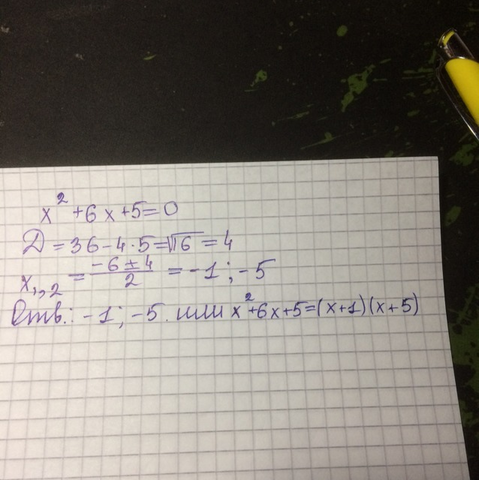 x² + 6x + 5 = 0
Д = 36 - 4 · 5 = √16 = 4
x₁,₂ = (-6 ± 4)/2 = -1; -5
Отв.: -1; -5. или x² + 6x + 5 = (x+1)(x+5)